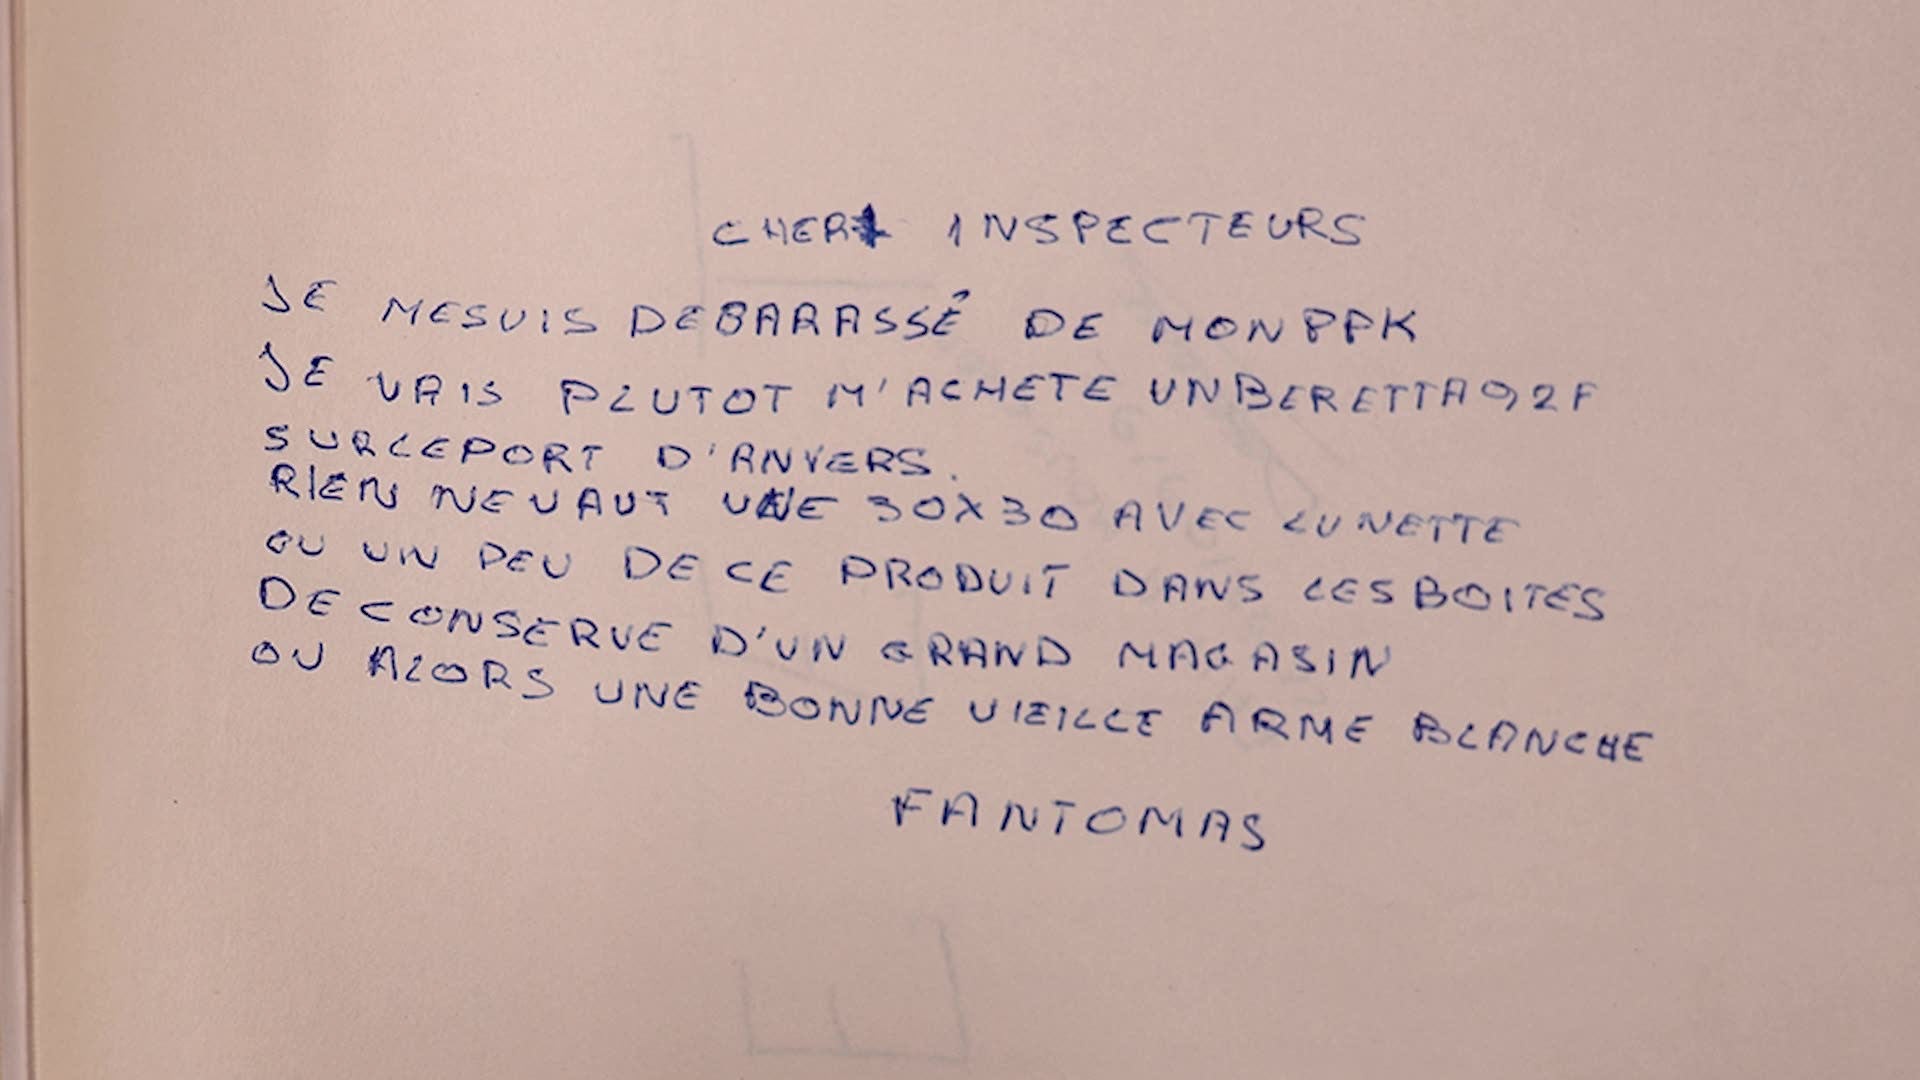 CHER INSPECTEURS
JE MESUIS DEBARASSÉ DE MON PPK
JE VAIS PLUTOT M'ACHETE UN BERETTA 92F
SUR LE PORT D'ANVERS.
RIEN NE VAUT UNE 30X30 AVEC LUNETTE
OU UN PEU DE CE PRODUIT DANS LES BOITES
DE CONSERVE D'UN GRAND MAGASIN
OU ALORS UNE BONNE VIEILLE ARME BLANCHE
FANTOMAS